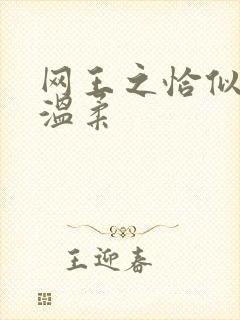 网王之恰似
温柔
王迎春